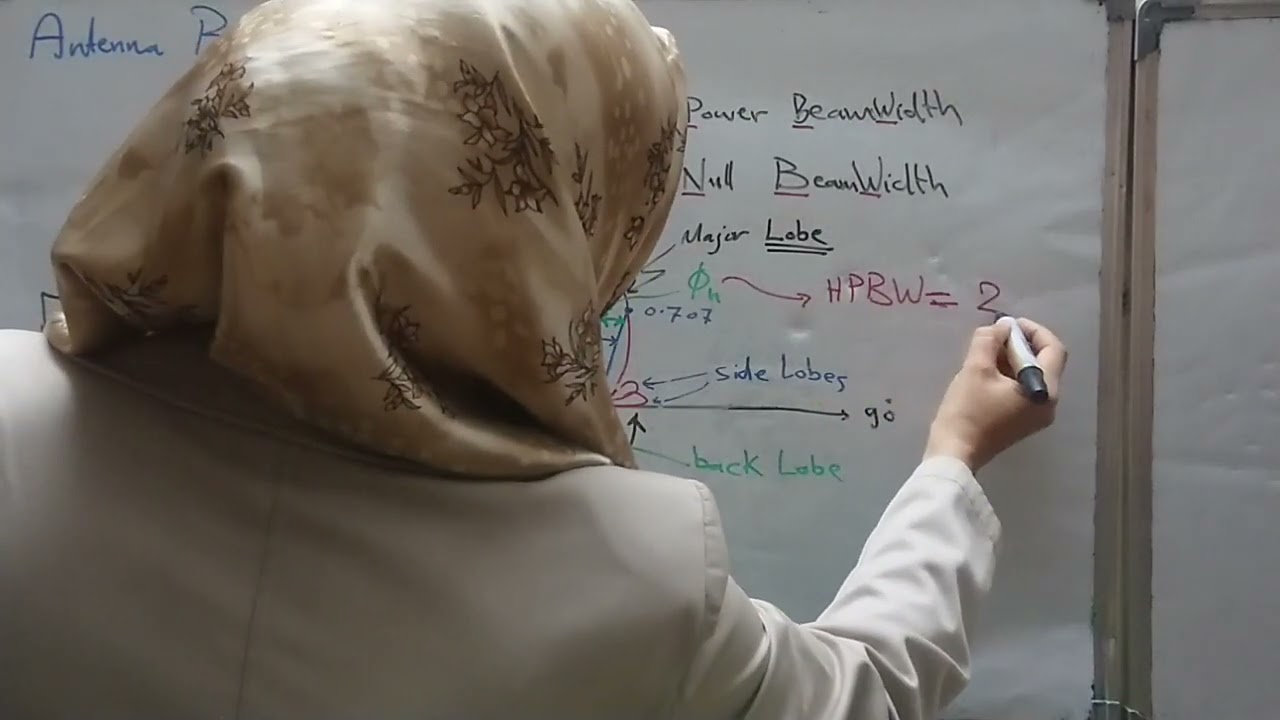 Antenna
Power BeamWidth
Null BeamWidth
Major Lobe
ϕh → HPBW = 2
0.707
side Lobes
90°
back Lobe